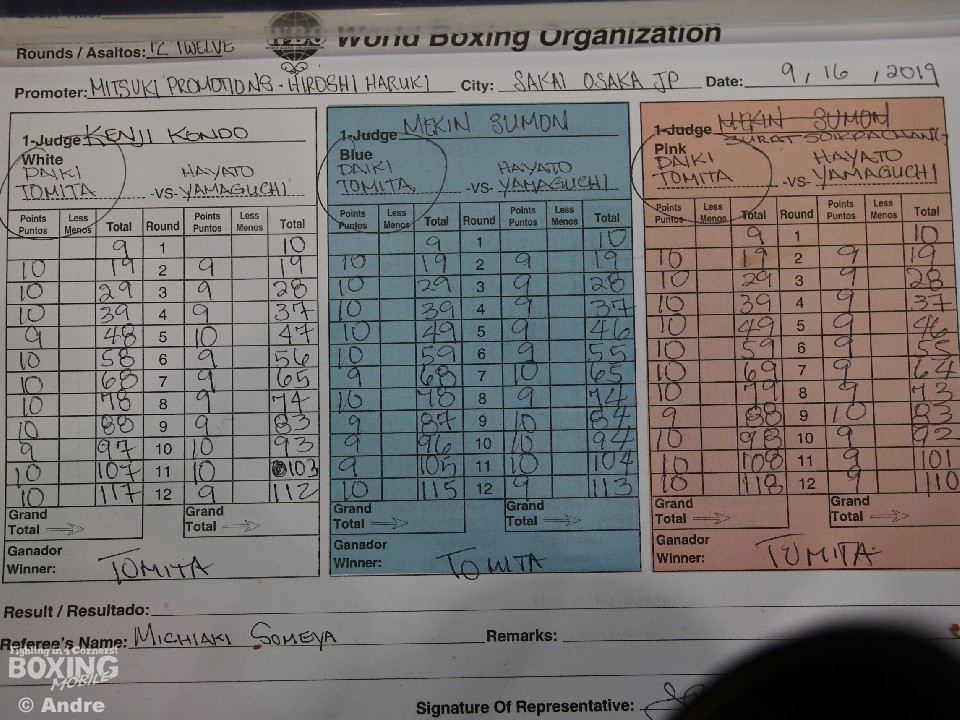 Rounds / Asaltos: 12 TWELVE
WBO World Boxing Organization
Promoter: MITSUKI PROMOTIONS - HIROSHI HARUKI City: SAKAI OSAKA JP Date: 9, 16, 2019
1-Judge KENJI KONDO
White
DAIKI TOMITA -VS- HAYATO YAMAGUCHI
Points Puntos Less Menos Total Round Points Puntos Less Menos Total
9 1 10
10 19 2 9 19
10 29 3 9 28
10 39 4 9 37
9 48 5 10 47
10 58 6 9 56
10 68 7 9 65
10 78 8 9 74
10 88 9 9 83
9 97 10 10 93
10 107 11 10 103
10 117 12 9 112
Grand Total Grand Total
Ganador
Winner: TOMITA
1-Judge MEKIN SUMON
Blue
DAIKI TOMITA -VS- HAYATO YAMAGUCHI
Points Puntos Less Menos Total Round Points Puntos Less Menos Total
9 1 10
10 19 2 9 19
10 29 3 9 28
10 39 4 9 37
10 49 5 9 46
10 59 6 9 55
9 68 7 10 65
10 78 8 9 74
9 87 9 10 84
9 96 10 10 94
9 105 11 10 104
10 115 12 9 113
Grand Total Grand Total
Ganador
Winner: TOMITA
1-Judge MEKIN SUMON
SURAT SOIKRACHANG
Pink
DAIKI TOMITA -VS- HAYATO YAMAGUCHI
Points Puntos Less Menos Total Round Points Puntos Less Menos Total
9 1 10
10 19 2 9 19
10 29 3 9 28
10 39 4 9 37
10 49 5 9 46
10 59 6 9 55
10 69 7 9 64
10 79 8 9 73
9 88 9 10 83
10 98 10 9 92
10 108 11 9 101
10 118 12 9 110
Grand Total Grand Total
Ganador
Winner: TOMITA
Result / Resultado:
Referee's Name: MICHIAKI SOMEYA Remarks:
Fighting in 4 Corners!
BOXING
MOBILE
© Andre
Signature Of Representative: